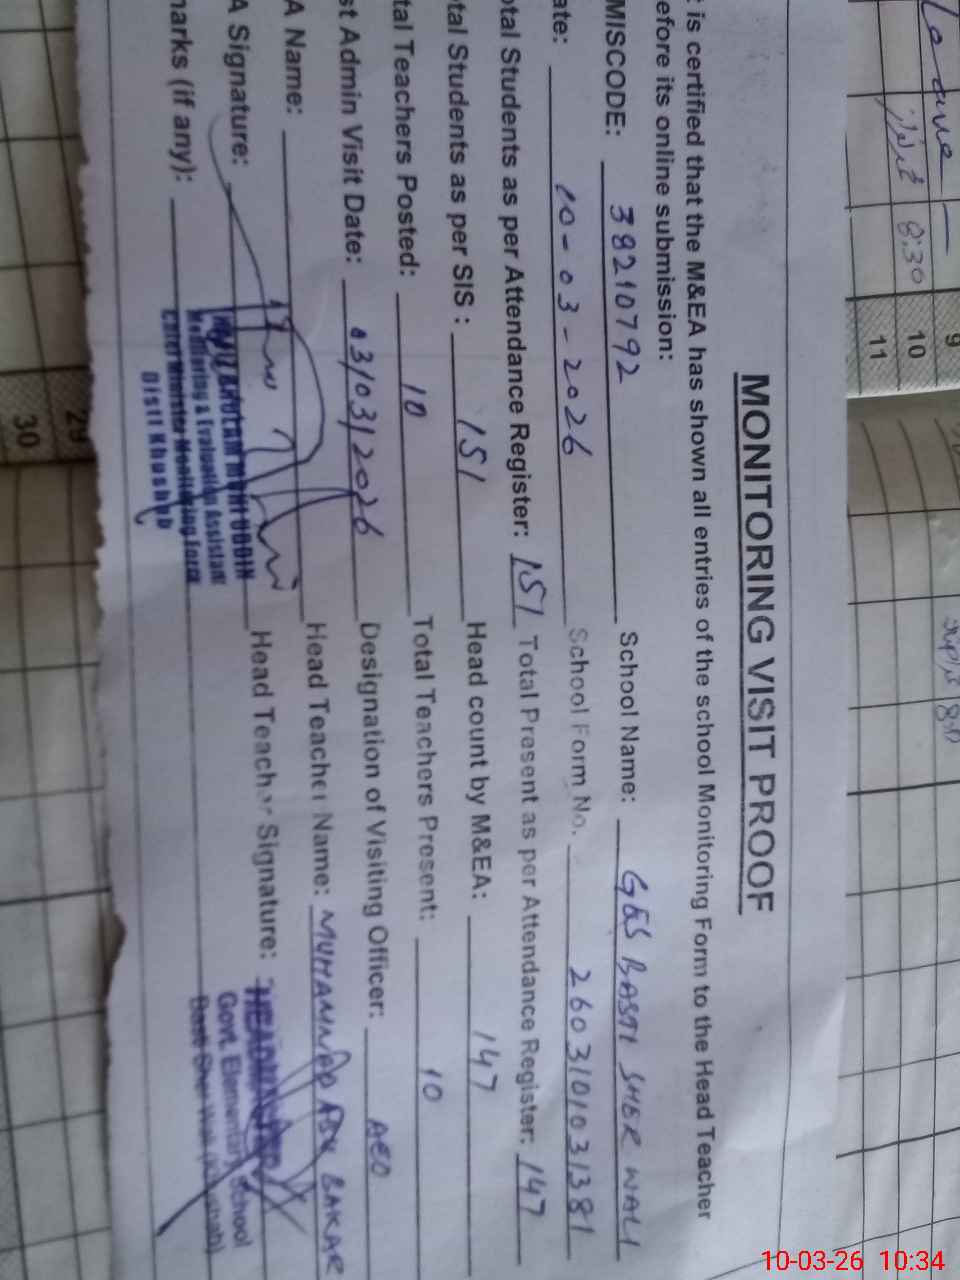 MONITORING VISIT PROOF
is certified that the M&EA has shown all entries of the school Monitoring Form to the Head Teacher
efore its online submission:
MISCODE: 38210792 School Name: GES BASTI SHER WALI
ate: 10-03-2026 School Form No. 2603101031381
otal Students as per Attendance Register: 151 Total Present as per Attendance Register: 147
tal Students as per SIS : 151 Head count by M&EA: 147
tal Teachers Posted: 10 Total Teachers Present: 10
st Admin Visit Date: 03/03/2026 Designation of Visiting Officer: AEO
A Name: Head Teacher Name: MUHAMMAD ABU BAKAR
A Signature: Head Teacher Signature:
marks (if any):
Monitoring & Evaluation Assistant
Chief Minister Monitoring Force
Distt Khushab
Govt. Elementary School
8:30
9
10
11
29
30
10-03-26 10:34